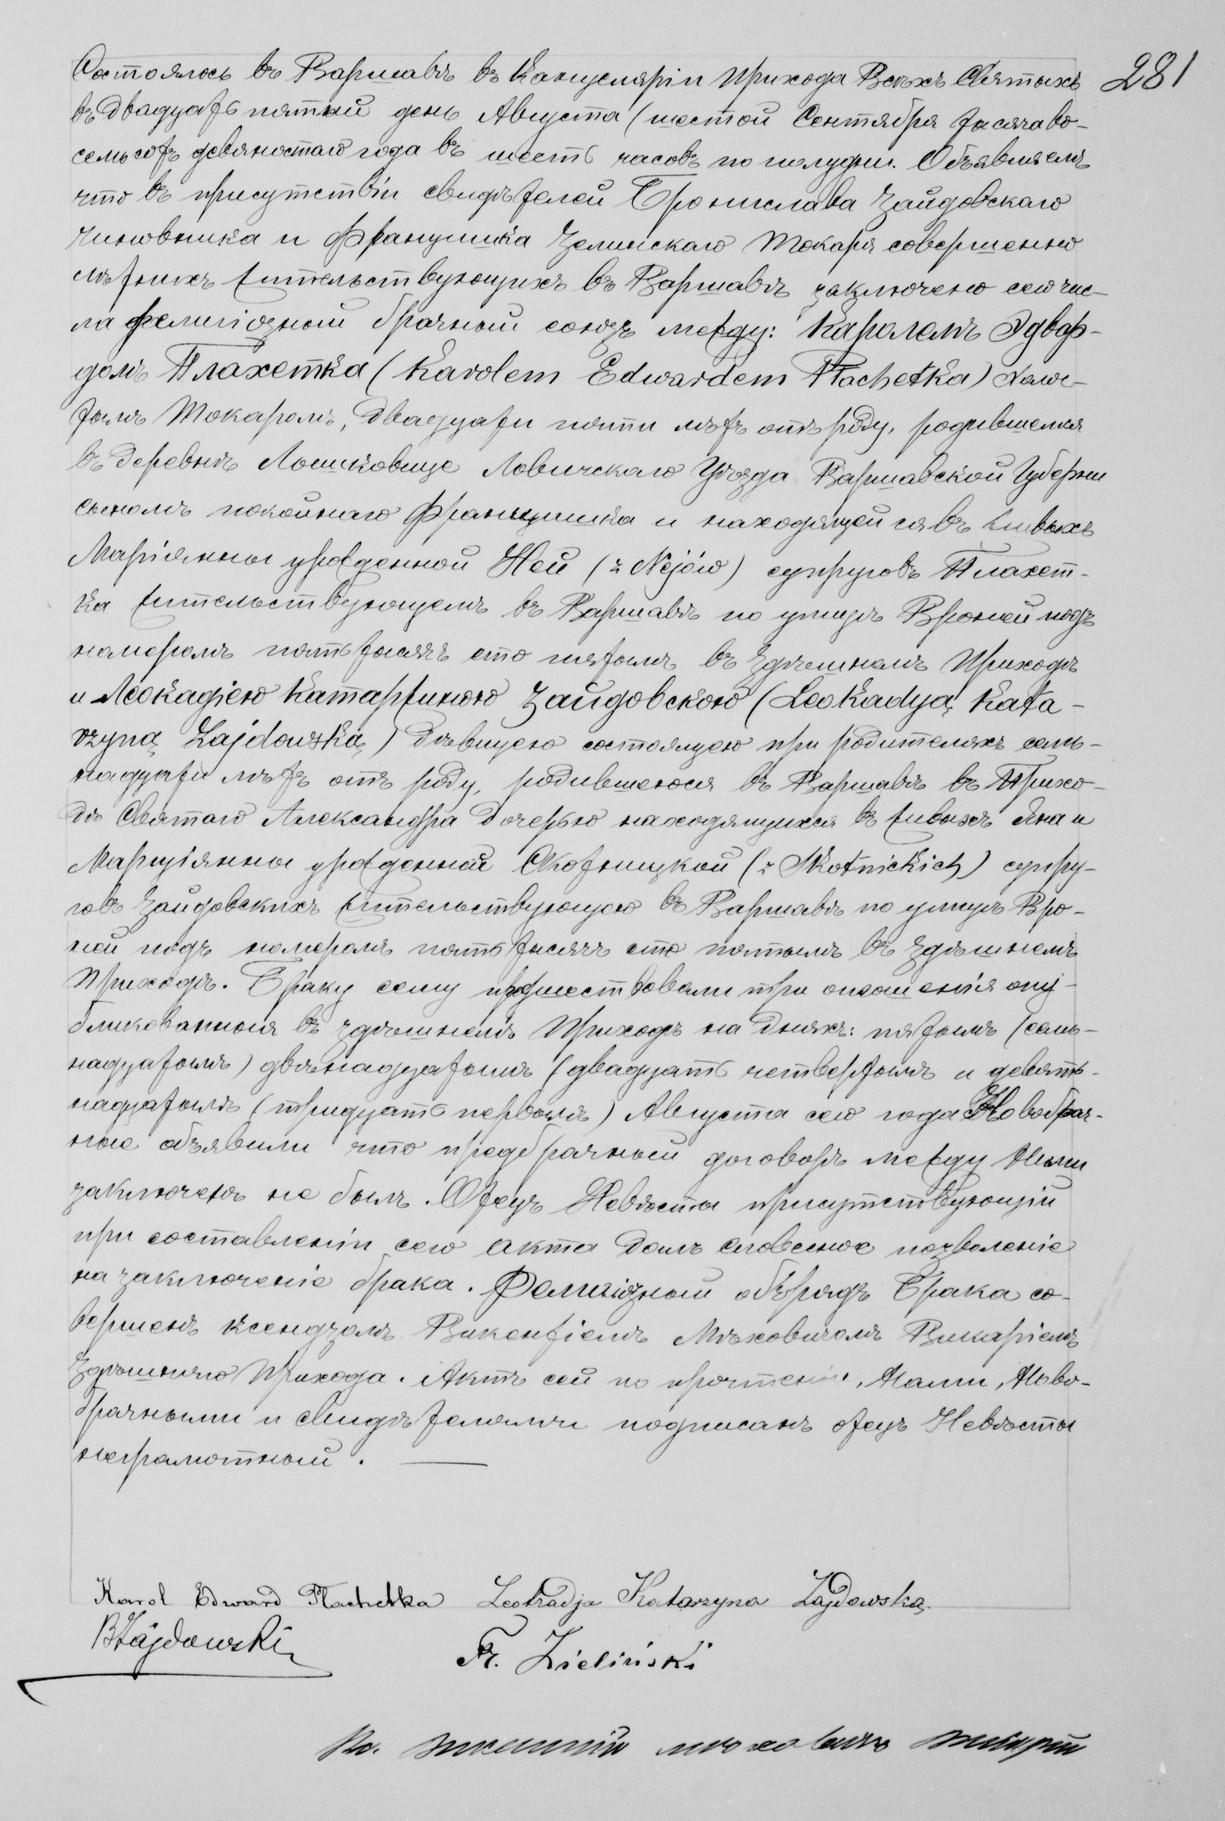 281
Состоялось въ Варшавѣ въ Канцеляріи Прихода Всѣхъ Святыхъ
въ двадцать пятый день Августа (шестой Сентября тысяча во-
семьсотъ девяностаго года въ шесть часовъ по полудни. Объявляемъ
что въ присутствіи свидѣтелей Бронислава Зайдовскаго
чиновника и Францишка Зелинскаго токаря совершенно
лѣтнихъ жительствующихъ въ Варшавѣ заключено сего чис-
ла религіозный брачный союзъ между: Каролемъ Эдвар-
домъ Плахетка (Karolem Edwardem Płachetka) холос-
тымъ токаремъ, двадцати пяти лѣтъ отъ роду, родившемся
въ деревнѣ Ловичскаго Уѣзда Варшавской Губерніи
сыномъ покойнаго Францишка и находящейся въ живыхъ
Маріянны урожденной Ней (z Nejów) супруговъ Плахет-
ка жительствующемъ въ Варшавѣ по улицѣ Вроней подъ
номеромъ пять тысячъ сто пятымъ въ здѣшнемъ Приходѣ
и Леокадіею Катаржиною Зайдовскою (Leokadyą Kata-
rzyną Zajdowską) дѣвицею состоящею при родителяхъ семь-
надцати лѣтъ отъ роду, родившеюся въ Варшавѣ въ Прихо-
дѣ Святаго Александра дочерью находящихся въ живыхъ Яна и
Марціянны урожденной Скотницкой (z Skotnickich) супру-
говъ Зайдовскихъ жительствующею въ Варшавѣ по улицѣ Вро-
ней подъ номеромъ пять тысячъ сто пятымъ въ здѣшнемъ
Приходѣ. Браку сему предшествовали три оглашенія опу-
бликованныя въ здѣшнемъ Приходѣ на дняхъ: пятымъ (семь-
надцатымъ) двѣнадцатымъ (двадцать четвертымъ и девят-
надцатымъ (тридцать первымъ) Августа сего года Новобрач-
ные объявили что предбрачный договоръ между ними
заключенъ не былъ. Отецъ Невѣсты присутствующій
при составленіи сего акта далъ словесное позволеніе
на заключеніе брака. Религіозный обрядъ Брака со-
вершенъ ксендзомъ Викентіемъ Мѣховичомъ Викаріемъ
здѣшняго Прихода. Актъ сей по прочтеніи, Нами, Ново-
брачными и свидѣтелями подписанъ отецъ Невѣсты
неграмотный.
Karol Edward Płachetka Leokadja Katarzyna Zajdowska
B Zajdowski
Fr. Zieliński
Кс. Викентій Мѣховичъ Викарій